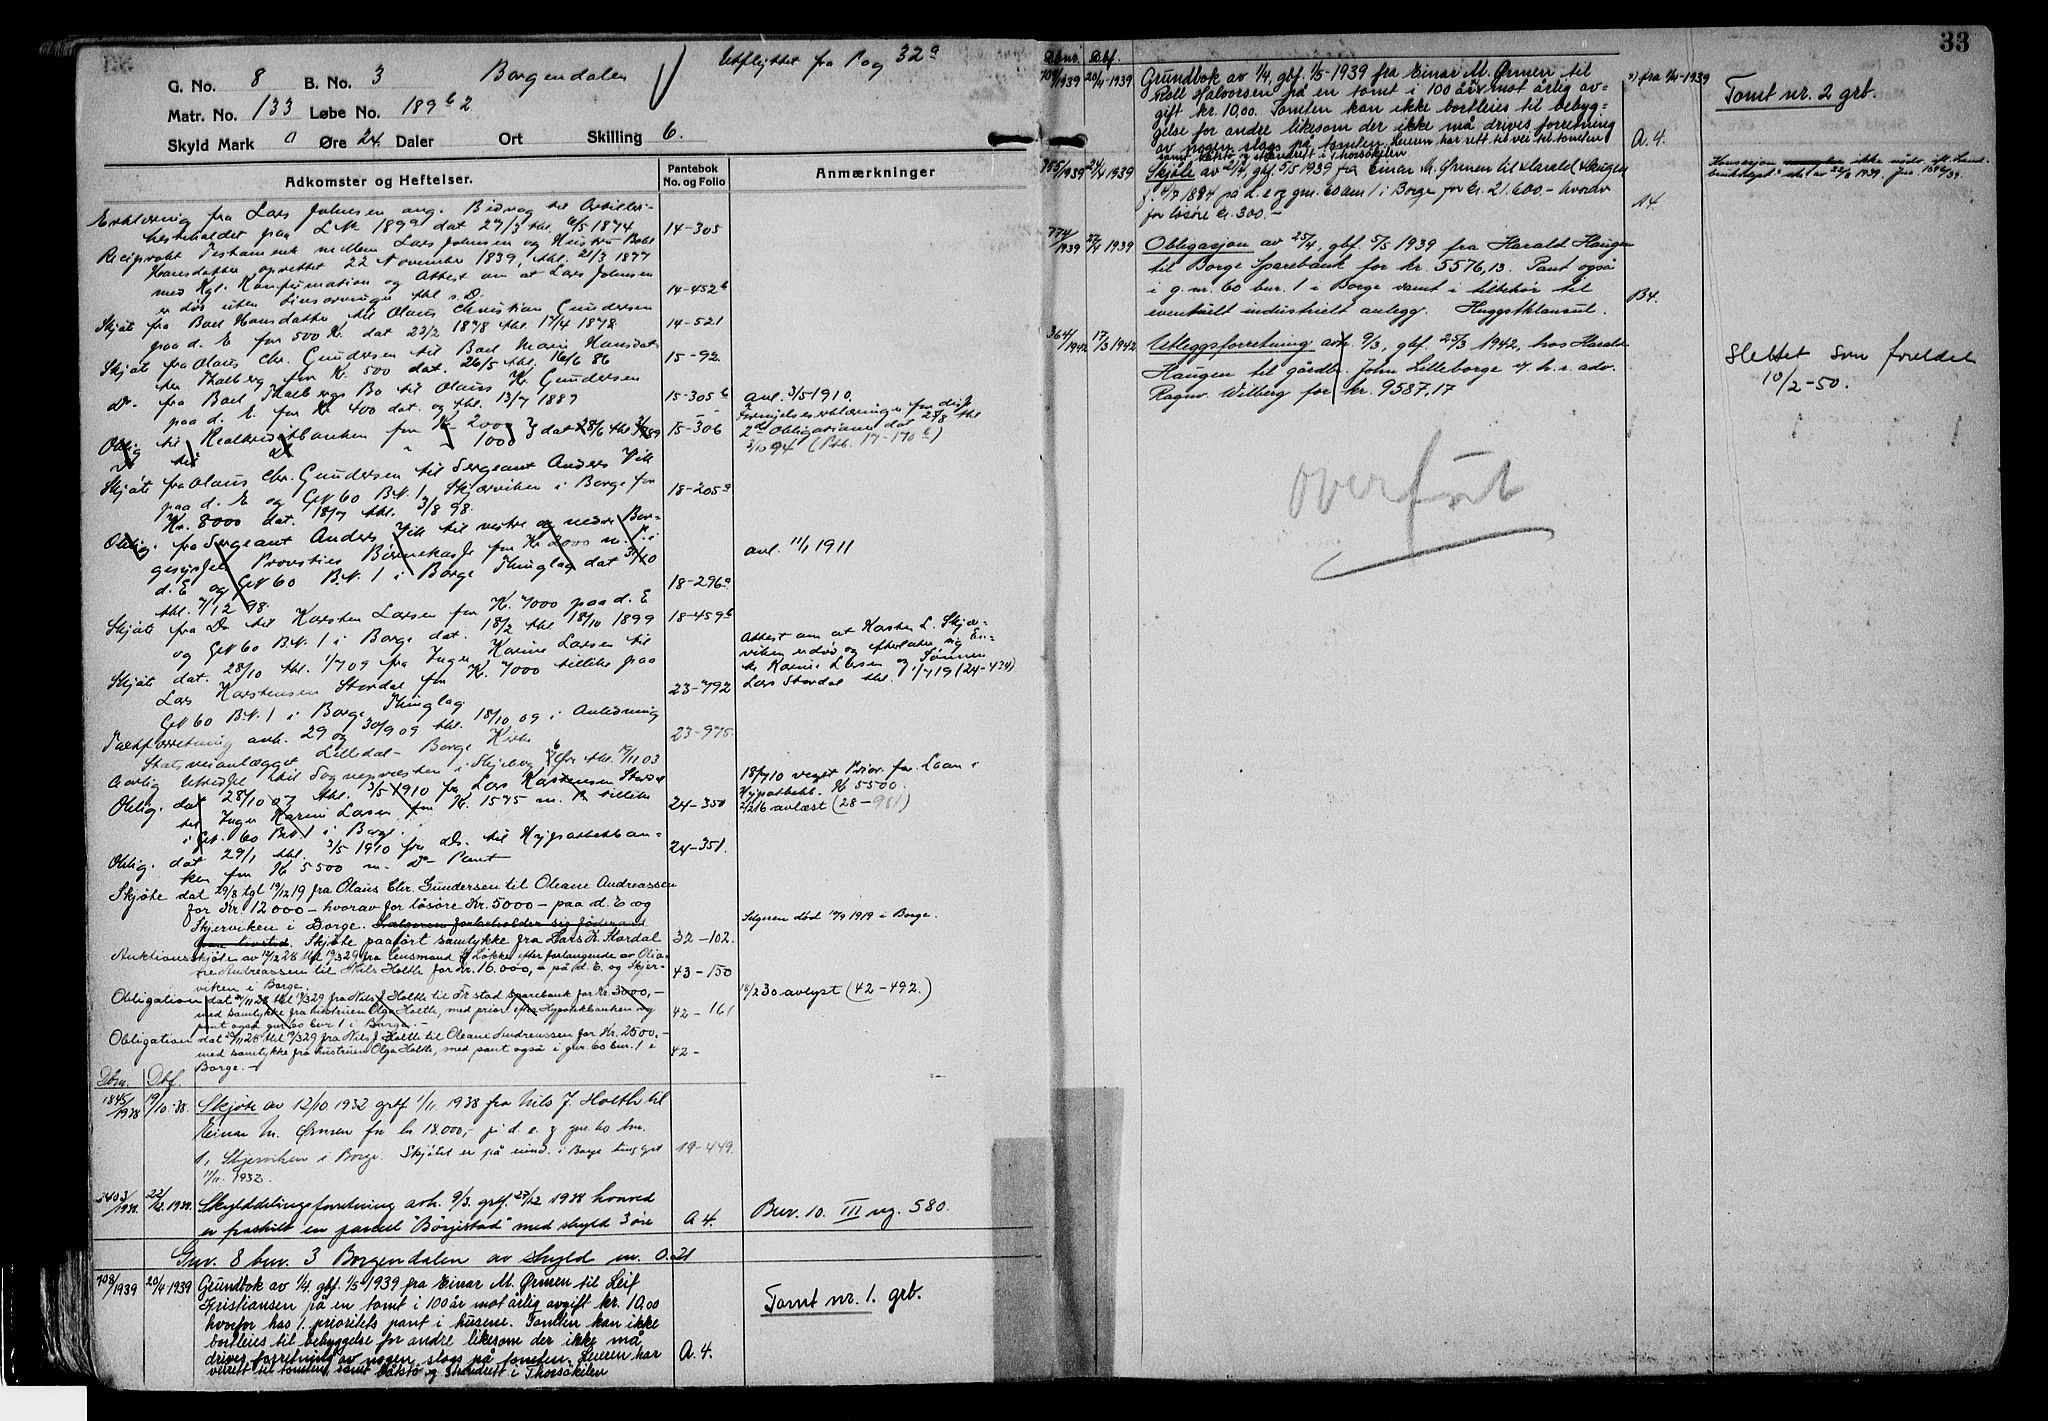 G. No. 8 B. No. 3 Borgendalen Utflyttet fra Pag 32a
Matr. No. 133 Løbe No. 189 b 2
Skyld Mark 0 Øre 24 Daler Ort Skilling 6.
Adkomster og Heftelser.
Pantebok No. og Folio
Anmærkninger
Erklæring fra Lars Johnsen ang. Bidrag til
paa L.No 189a dat 27/3 thl. 6/5 1874 14-305
Reciprokt Testament mellem Lars Johnsen og Hustru Boel
Hansdatter oprettet 22 November 1839, thl. 21/3 1877
med Kgl. Konfirmation og Attest om at Lars Johnsen
er død uten Livsarvinger thl s.D. 14-452b
Skjøte fra Boel Hansdatter til Olaus Christian Gundersen
paa d. E for 500 Kr. dat 22/2 1878 thl. 17/4 1878 14-521
Skjøte fra Olaus Chr. Gundersen til Boel Marie Hansdat-
ter Thalberg for Kr. 500 dat. 26/5 thl. 16/6 86 15-92
Do fra Boel Thalbergs Bo til Olaus Kr. Gundersen
paa d. E. for Kr 400 dat. og thl. 13/7 1889 15-305b
Oblig til Realkreditbanken for Kr 2000 dat 28/6 thl 89 15-306
Do til Do " 1000
avl. 3/5 1910.
2det Obligationer dat 27/8 thl
3/10 94 (Ptb. 17-170b)
Skjøte fra Olaus Chr. Gundersen til Sergeant Anders Vik
paa d. E og GN 60 B.N. 1 Skjærviken i Borge for
Kr. 8000 dat. 18/7 thl. 3/8 98. 18-205a
Oblig. fra Sergeant Anders Vik til vestre og nedre Bor-
gesyssels Provsties Børnekasse for Kr 2000 m. P. i
d. E og GN 60 B.N. 1 i Borge Thinglag dat 31/10
thl. 7/12 98. 18-296a
avl. 11/1 1911
Skjøte fra Do til Karsten Larsen for Kr. 7000 paa d. E
og GN 60 B.N. 1 i Borge dat. 18/2 thl 18/10 1899 18-459b
Skjøte dat. 28/10 thl. 1/7 09 fra Inger Karine Larsen til
Lars Karstensen Stordal for Kr. 7000 tillike paa
GN 60 B.N. 1 i Borge Thinglag 23-792
Attest om at Karsten L. Skjær-
viken er død og efterlater sig En-
ke Karine Larsen og Sønnen
Lars Stordal thl. 1/7 19 (24-434)
Takstforretning avh. 29 og 30/9 09 thl. 18/10 09 i Anledning
Statsveianlægget Lilledal - Borge Kirke 23-975
Aarlig Utredsel til Sognepræsten i Skjeberg 6 Øre thl. 19/11 03
Oblig. dat 28/10 07 thl. 3/5 1910 fra Lars Karstensen Stordal
til Inger Karine Larsen for Kr. 1575 m. P. tillike
i GN. 60 B.N. 1 i Borge. 24-350
18/7 10 veget Prior. for Laan i
Hypothekb. Kr 5500.
2/2 16 avlæst (28-981)
Oblig. dat 29/1 thl. 3/5 1910 fra Ds. til Hypothekban-
ken for Kr 5500 m. Do Pant 24-351.
Skjøte dat 29/8 tgl 19/12 19 fra Olaus Chr. Gundersen til Oleane Andreassen
for Kr. 12 000 - hvorav for løsøre Kr. 5000 - paa d. E og
Skjerviken i Borge. Sælgeren forbeholder sig føderaad
livstid. Skjøte paaført samtykke fra Lars K. Stordal 32-102.
Selgeren død 17/9 1919 i Borge.
Auktionsskjøte av 17/12 28 thl 19/3 29 fra Lensmand Løkke efter forlangende av Olea-
ne Andreassen til Nils Holthe for Kr. 16.000,- på d. E. og Skjer-
viken i Borge. 43-150
Obligation dat 27/11 28 thl 19/3 29 fra Nils J Holthe til Fr.stad sparebank for Kr. 3000,-
med samtykke fra hustruen Olga Holthe, med prior efter Hypotekbanken og
pant også gnr 60 bnr 1 i Borge.- 42-161
18/2 30 avlyst (42-492.)
Obligation dat 27/11 28 thl 19/3 29 fra Nils J Holthe til Oleane Andreassen for Kr. 2500,-
med samtykke fra hustruen Olga Holthe, med pant også i gnr. 60 bnr. 1 i
Borge.- 42-
Dbnr. Dbf.
1845/1938 19/10-38. Skjøte av 12/10 1932 grbf 1/11 1938 fra Nils J. Holth til
Einar M. Ørmen for kr 18.000,- på d. e. og gnr. 60 bnr.
1, Skjerviken i Borge. Skjøtet er på eiend. i Borge tinglyst
17/11. 1932. 19-449.
2403/1938. 22/12. 1938. Skylddelingsforretning avh. 9/3. grbf. 27/12 1938 hvorved
er fraskilt en parsell "Borgestad" med skyld 3 øre A 4. Bnr. 10. III ng. 580.
Gnr. 8 bnr. 3 Borgendalen av skyld m. 0.21
708/1939 20/4 1939 Grundbok av 1/4, gbf. 1/5-1939 fra Einar M. Ørmen til Leif
Kristiansen på en tomt i 100 år mot årlig avgift kr. 10,00
hvorfor has 1. prioritets pant i husene. Tomten kan ikke
bortleies til bebyggelse for andre likesom der ikke må
drives forretning av nogen slags på tomten. Leieren har
veirett til tomten, samt båtstø og strandrett i Thorsøkilen A. 4.
Tomt nr. 1. grb.
33
Dbnr. Dbf.
709/1939 20/4 1939 Grundbok av 1/4, gbf. 1/5-1939 fra Einar M. Ørmen til
Rolf Halvorsen på en tomt i 100 år x mot årlig av-
gift kr. 10,00. Tomten kan ikke bortleies til bebyg-
gelse for andre likesom der ikke må drives forretning
av nogen slags på tomten. Leieren har rett til vei til tomten
samt båtstø og strandrett i Thorsøkilen A. 4.
x) fra 1/4-1939
Tomt nr. 2 grb.
755/1939 24/4 1939 Skjøte av 21/4, gbf. 5/5 1939 fra Einar M. Ørmen til Harald Haugen
f. 4/7 1884 på d. e og gnr. 60 bnr 1 i Borge for kr. 21.600.- hvorav
for løsøre kr. 300.- 14.
Konsesjon ikke nødv. ifl. Land-
bruksdept. skr. av 22/3 1939. Jnr.
774/1939 27/4 1939 Obligasjon av 25/4, gbf. 5/5 1939 fra Harald Haugen
til Borge Sparebank for kr. 5576,13. Pant også
i g. nr. 60 bnr. 1 i Borge samt i tilbehør til
eventuelt industrielt anlegg. Huggstklausul. B4.
364/1942 17/3 1942 Utleggsforretning avh. 9/3, gbf 25/3 1942, hos Harald
Haugen til gårdbr. John Lilleborge v/ h. r. adv.
Ragnv. Wilberg for kr. 9537,17
Slettet som foreldet
10/2-50.
Overført